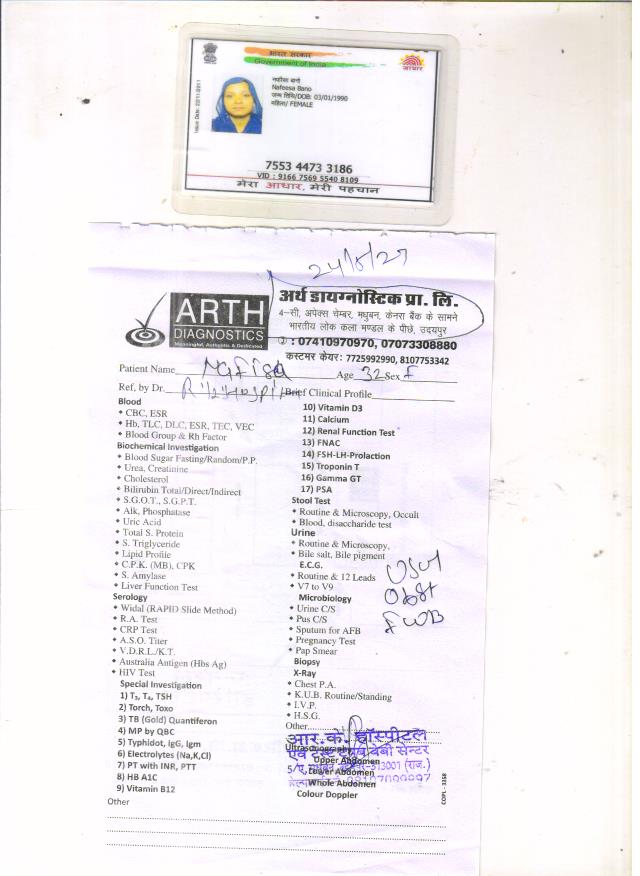 भारत सरकार
Government of India
आधार
Issue Date: 22/11/2011
नफीसा बानो
Nafeesa Bano
जन्म तिथि/DOB: 03/01/1990
महिला/ FEMALE
7553 4473 3186
VID : 9166 7569 5540 8109
मेरा आधार, मेरी पहचान
ARTH
DIAGNOSTICS
Meaningful, Authentic & Dedicated
अर्थ डायग्नोस्टिक प्रा. लि.
4-सी, अपेक्स चेम्बर, मधुबन, केनरा बैंक के सामने
भारतीय लोक कला मण्डल के पीछे, उदयपुर
: 07410970970, 07073308880
कस्टमर केयर: 7725992990, 8107753342
Patient Name Nafisa Age 32 Sex F
Ref, by Dr. Brief Clinical Profile
Blood
CBC, ESR
Hb, TLC, DLC, ESR, TEC, VEC
Blood Group & Rh Factor
Biochemical Investigation
Blood Sugar Fasting/Random/P.P.
Urea, Creatinine
Cholesterol
Bilirubin Total/Direct/Indirect
S.G.O.T., S.G.P.T.
Alk, Phosphatase
Uric Acid
Total S. Protein
S. Triglyceride
Lipid Profile
C.P.K. (MB), CPK
S. Amylase
Liver Function Test
Serology
Widal (RAPID Slide Method)
R.A. Test
CRP Test
A.S.O. Titer
V.D.R.L./K.T.
Australia Antigen (Hbs Ag)
HIV Test
Special Investigation
1) T3, T4, TSH
2) Torch, Toxo
3) TB (Gold) Quantiferon
4) MP by QBC
5) Typhidot, IgG, Igm
6) Electrolytes (Na,K,Cl)
7) PT with INR, PTT
8) HB A1C
9) Vitamin B12
Other
10) Vitamin D3
11) Calcium
12) Renal Function Test
13) FNAC
14) FSH-LH-Prolaction
15) Troponin T
16) Gamma GT
17) PSA
Stool Test
Routine & Microscopy, Occult
Blood, disaccharide test
Urine
Routine & Microscopy,
Bile salt, Bile pigment
E.C.G.
Routine & 12 Leads
V7 to V9
Microbiology
Urine C/S
Pus C/S
Sputum for AFB
Pregnancy Test
Pap Smear
Biopsy
X-Ray
Chest P.A.
K.U.B. Routine/Standing
I.V.P.
H.S.G.
Other
Obst
FWB
आर.के. हॉस्पीटल
एवं टेस्ट ट्यूब बेबी सेन्टर
Ultrasonography
Upper Abdomen
Lower Abdomen
Whole Abdomen
Colour Doppler
COPL - 3158